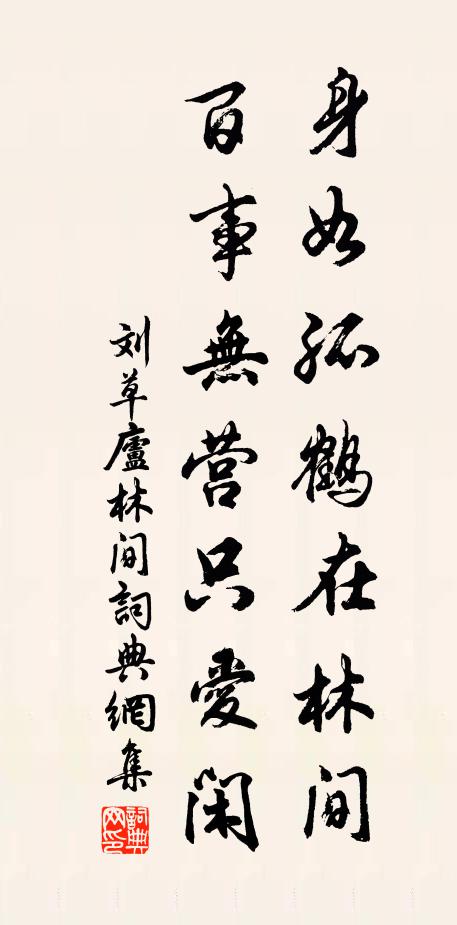 身如孤鹤在林间
百事無营只愛闲
刘草廬林间詞典網集
詞典网印